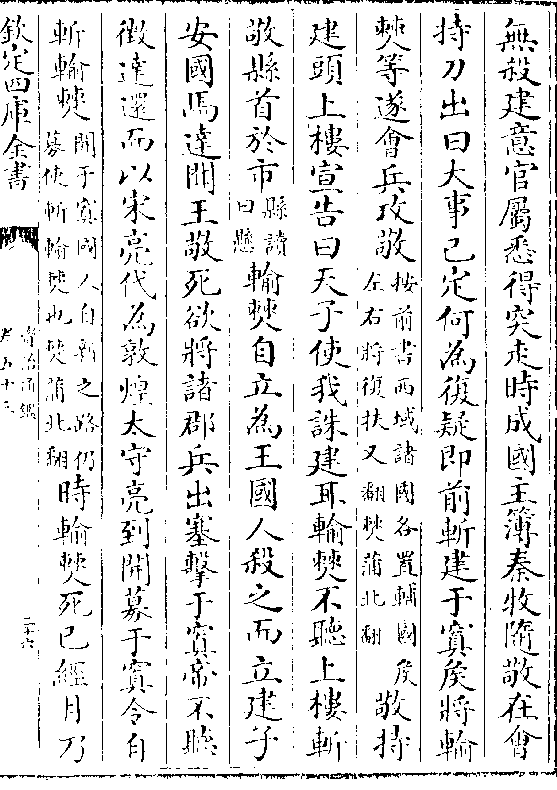 無殺建意官屬悉得突走時成國主簿秦牧隨敬在會
持刀出曰大事已定何為復疑即前斬建于窴矦將輸
僰等遂會兵攻敬按前書西域諸國各置輔國矦左右將復扶又翻僰蒲北翻敬持
建頭上樓宣告曰天子使我誅建耳輸僰不聽上樓斬
敬縣首於市縣讀曰懸輸僰自立為王國人殺之而立建子
安國馬達聞王敬死欲將諸郡兵出塞擊于窴帝不聽
徵達還而以宋亮代為敦煌太守亮到開募于窴令自
斬輸僰開于窴國人自新之路仍募使斬輸僰也僰蒲北翻時輸僰死已經月乃
欽定四庫全書
資治通鑑
卷五十三
二十六